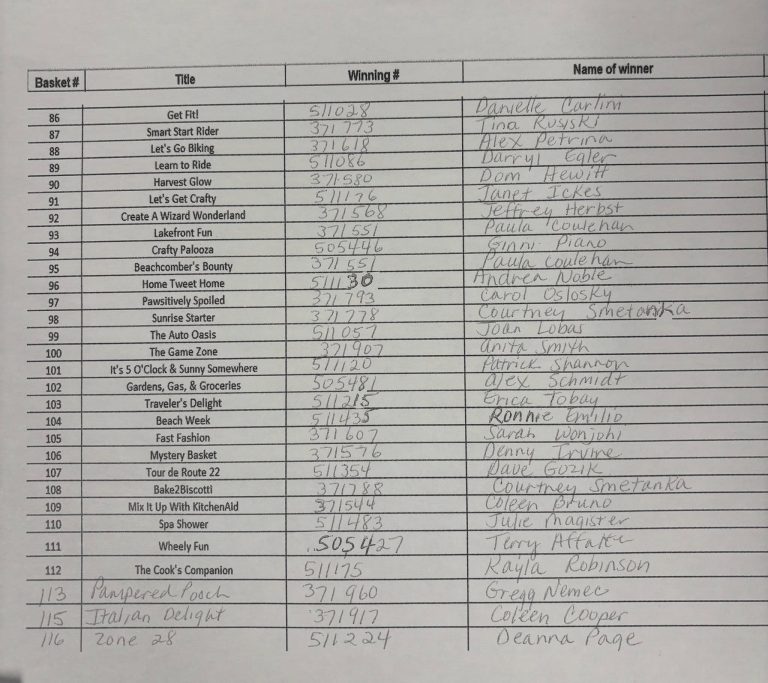 Basket # Title Winning # Name of winner
86 Get Fit! 511028 Danielle Carlini
87 Smart Start Rider 371773 Tina Rusyski
88 Let's Go Biking 371618 Alex Petrina
89 Learn to Ride 511086 Darryl Egler
90 Harvest Glow 371580 Dom Hewitt
91 Let's Get Crafty 511176 Janet Ickes
92 Create A Wizard Wonderland 371568 Jeffrey Herbst
93 Lakefront Fun 371551 Paula Coulehan
94 Crafty Palooza 505446 Ginni Piano
95 Beachcomber's Bounty 371551 Paula Coulehan
96 Home Tweet Home 511130 Andrea Noble
97 Pawsitively Spoiled 371793 Carol Oslosky
98 Sunrise Starter 371778 Courtney Smetanka
99 The Auto Oasis 511057 Joan Lobas
100 The Game Zone 371907 Anita Smith
101 It's 5 O'Clock & Sunny Somewhere 511120 Patrick Shannon
102 Gardens, Gas, & Groceries 505481 Alex Schmidt
103 Traveler's Delight 511215 Erica Tobay
104 Beach Week 511435 Ronnie Emilio
105 Fast Fashion 371607 Sarah Wonjohi
106 Mystery Basket 371576 Denny Irvine
107 Tour de Route 22 511354 Dave Gozik
108 Bake2Biscotti 371788 Courtney Smetanka
109 Mix It Up With KitchenAid 371544 Coleen Bruno
110 Spa Shower 511483 Julie Magister
111 Wheely Fun 505427 Terry
112 The Cook's Companion 511175 Kayla Robinson
113 Pampered Pooch 371960 Gregg Nemec
115 Italian Delight 371917 Coleen Cooper
116 Zone 28 511224 Deanna Page